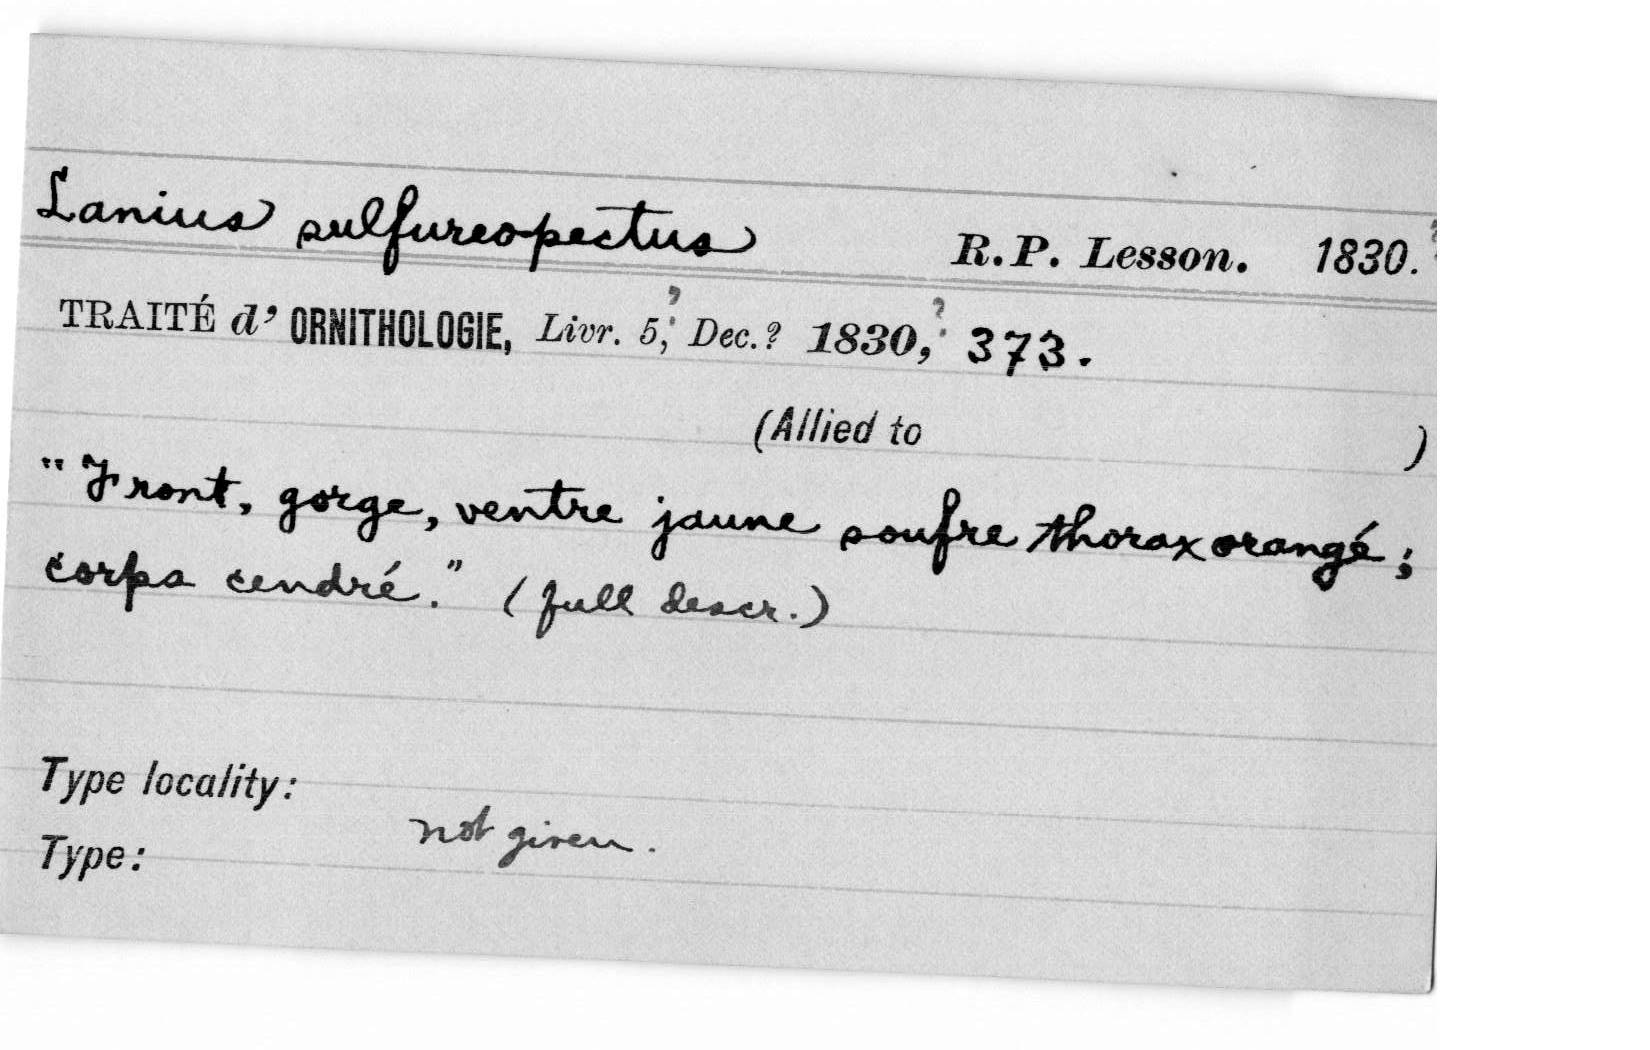 Lanius sulfureopectus R.P. Lesson. 1830.?
TRAITÉ d' ORNITHOLOGIE, Livr. 5,? Dec.? 1830,? 373.
(Allied to )
"Front, gorge, ventre jaune soufre thorax orangé;
corps cendré." (full descr.)
Type locality:
not given.
Type: